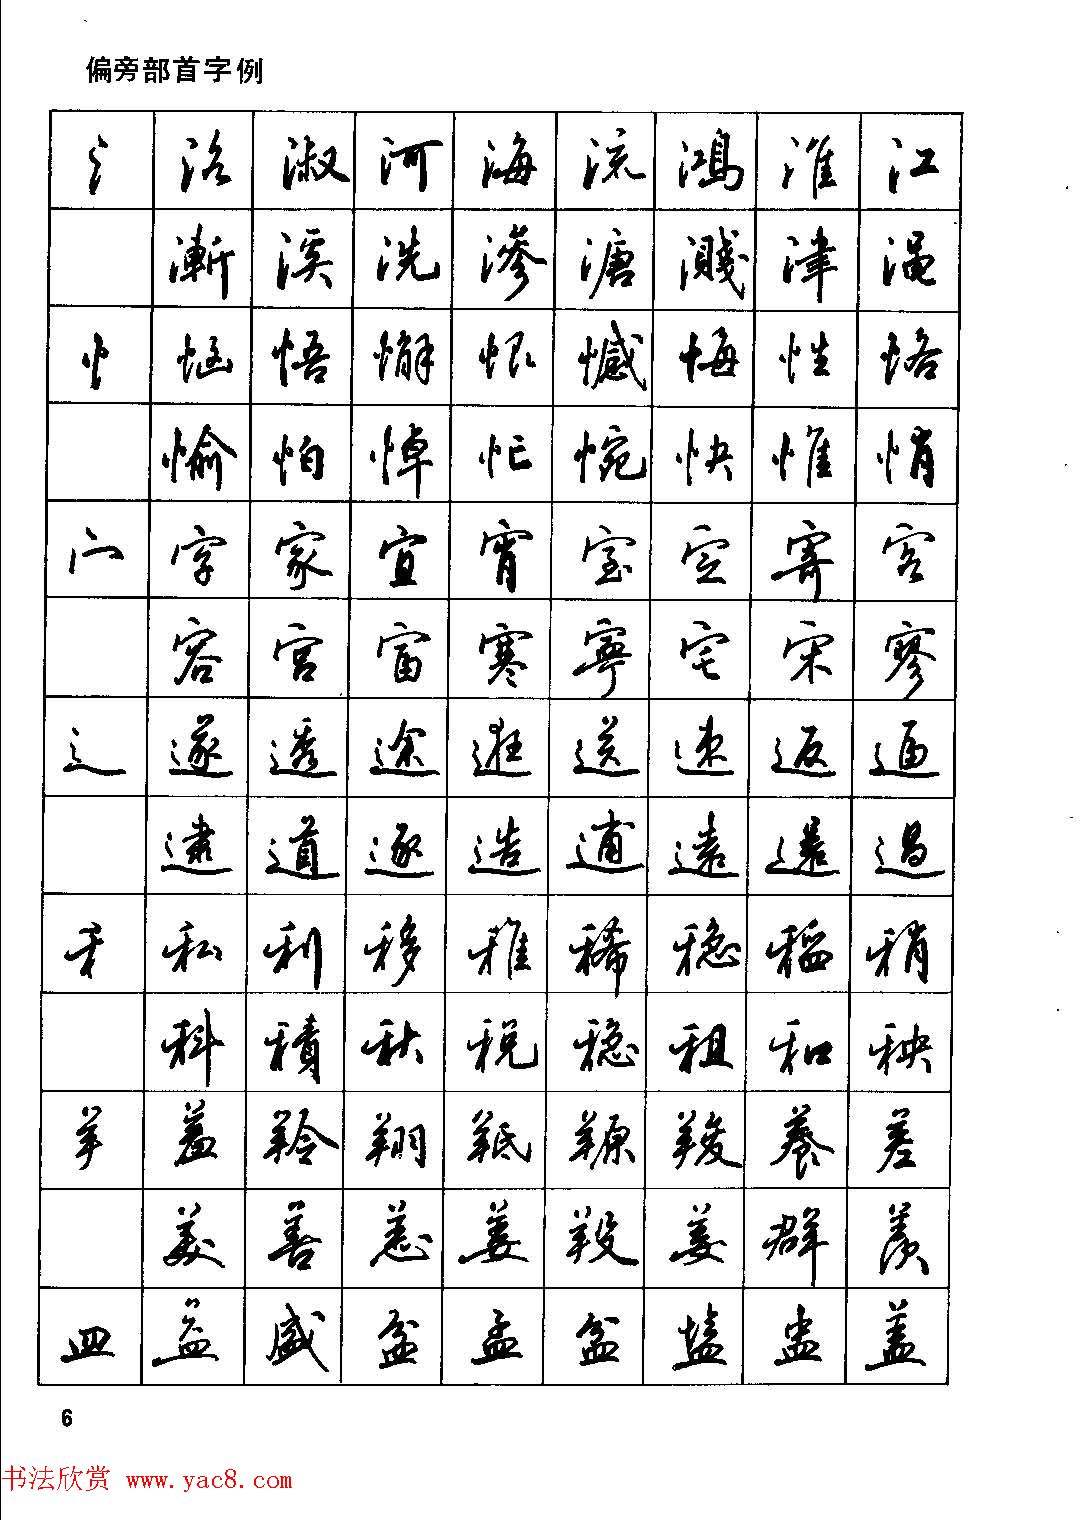 偏旁部首字例
氵 洛 淑 河 海 流 鸿 淮 江
渐 溪 洗 渗 溏 溅 津 渑
忄 悟 懈 恨 憾 悔 性 恪
愉 怕 悼 忙 惋 快 惟 悄
宀 字 家 宜 宵 室 定 寄 客
容 宫 富 寒 寧 宅 宋 寥
辶 遂 透 途 逛 送 速 返 逼
逮 道 逐 造 逋 遠 還 過
禾 私 利 移 稚 稀 稳 稻 稍
科 積 秋 税 稳 租 和 秧
羊 羔 羚 翔 羝 羱 羧 養 差
美 善 恙 姜 羖 姜 群 羡
皿 益 盛 盆 孟 盆 盍 盅 盖
6
书法欣赏 www.yac8.com